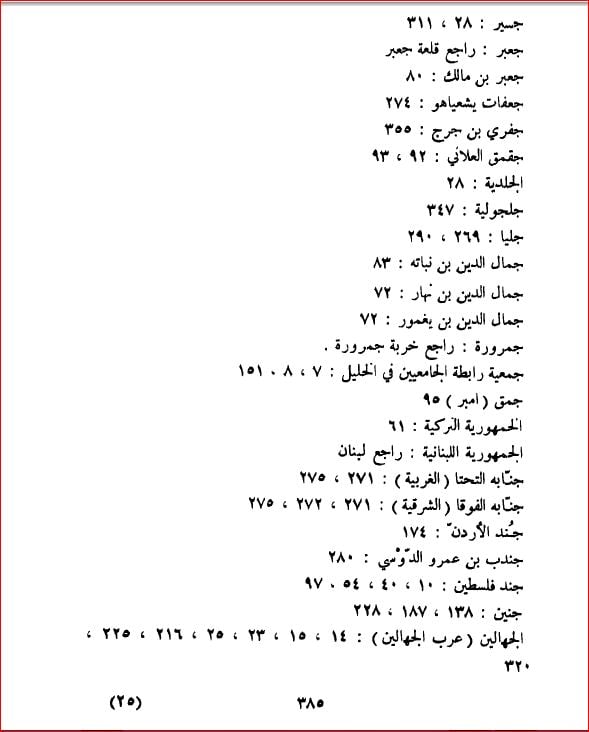 جسير : ٢٨ ، ٣١١
جعبر : راجع قلعة جعبر
جعبر بن مالك : ٨٠
جعفات يشعياهو : ٢٧٤
جفري بن جرج : ٣٥٥
جقمق العلاني : ٩٢ ، ٩٣
الجلدية : ٢٨
جلجولية : ٣٤٧
جليا : ٢٦٩ ، ٢٩٠
جمال الدين بن نباته : ٨٣
جمال الدين بن نهار : ٧٢
جمال الدين بن يغمور : ٧٢
جمرورة : راجع خربة جمرورة .
جمعية رابطة الجامعيين في الخليل : ٧ ، ٨ ، ١٥١
جمق ( امبر ) ٩٥
الجمهورية التركية : ٦١
الجمهورية اللبنانية : راجع لبنان
جنّابه التحتا ( الغربية ) : ٢٧١ ، ٢٧٥
جنّابه الفوقا ( الشرقية ) : ٢٧١ ، ٢٧٢ ، ٢٧٥
جُند الأردنّ : ١٧٤
جندب بن عمرو الدّوْسي : ٢٨٠
جند فلسطين : ١٠ ، ٤٠ ، ٥٤ ، ٩٧
جنين : ١٣٨ ، ١٨٧ ، ٢٢٨
الجهالين ( عرب الجهالين ) : ١٤ ، ١٥ ، ٢٣ ، ٢٥ ، ٢١٦ ، ٢٢٥ ،
٣٢٠
٣٨٥ (٢٥)